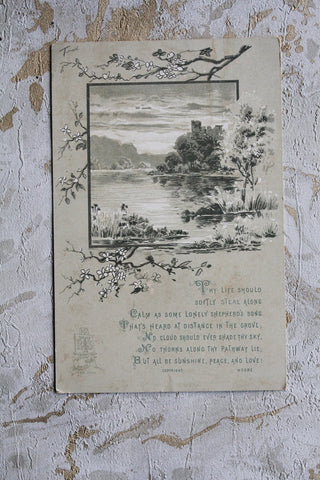 Thy life should
softly steal along
Calm as some lonely shepherd's song
That's heard at distance in the grove,
No cloud should ever shade thy sky,
No thorns along thy pathway lie,
But all be sunshine, peace, and love!
COPYRIGHT.